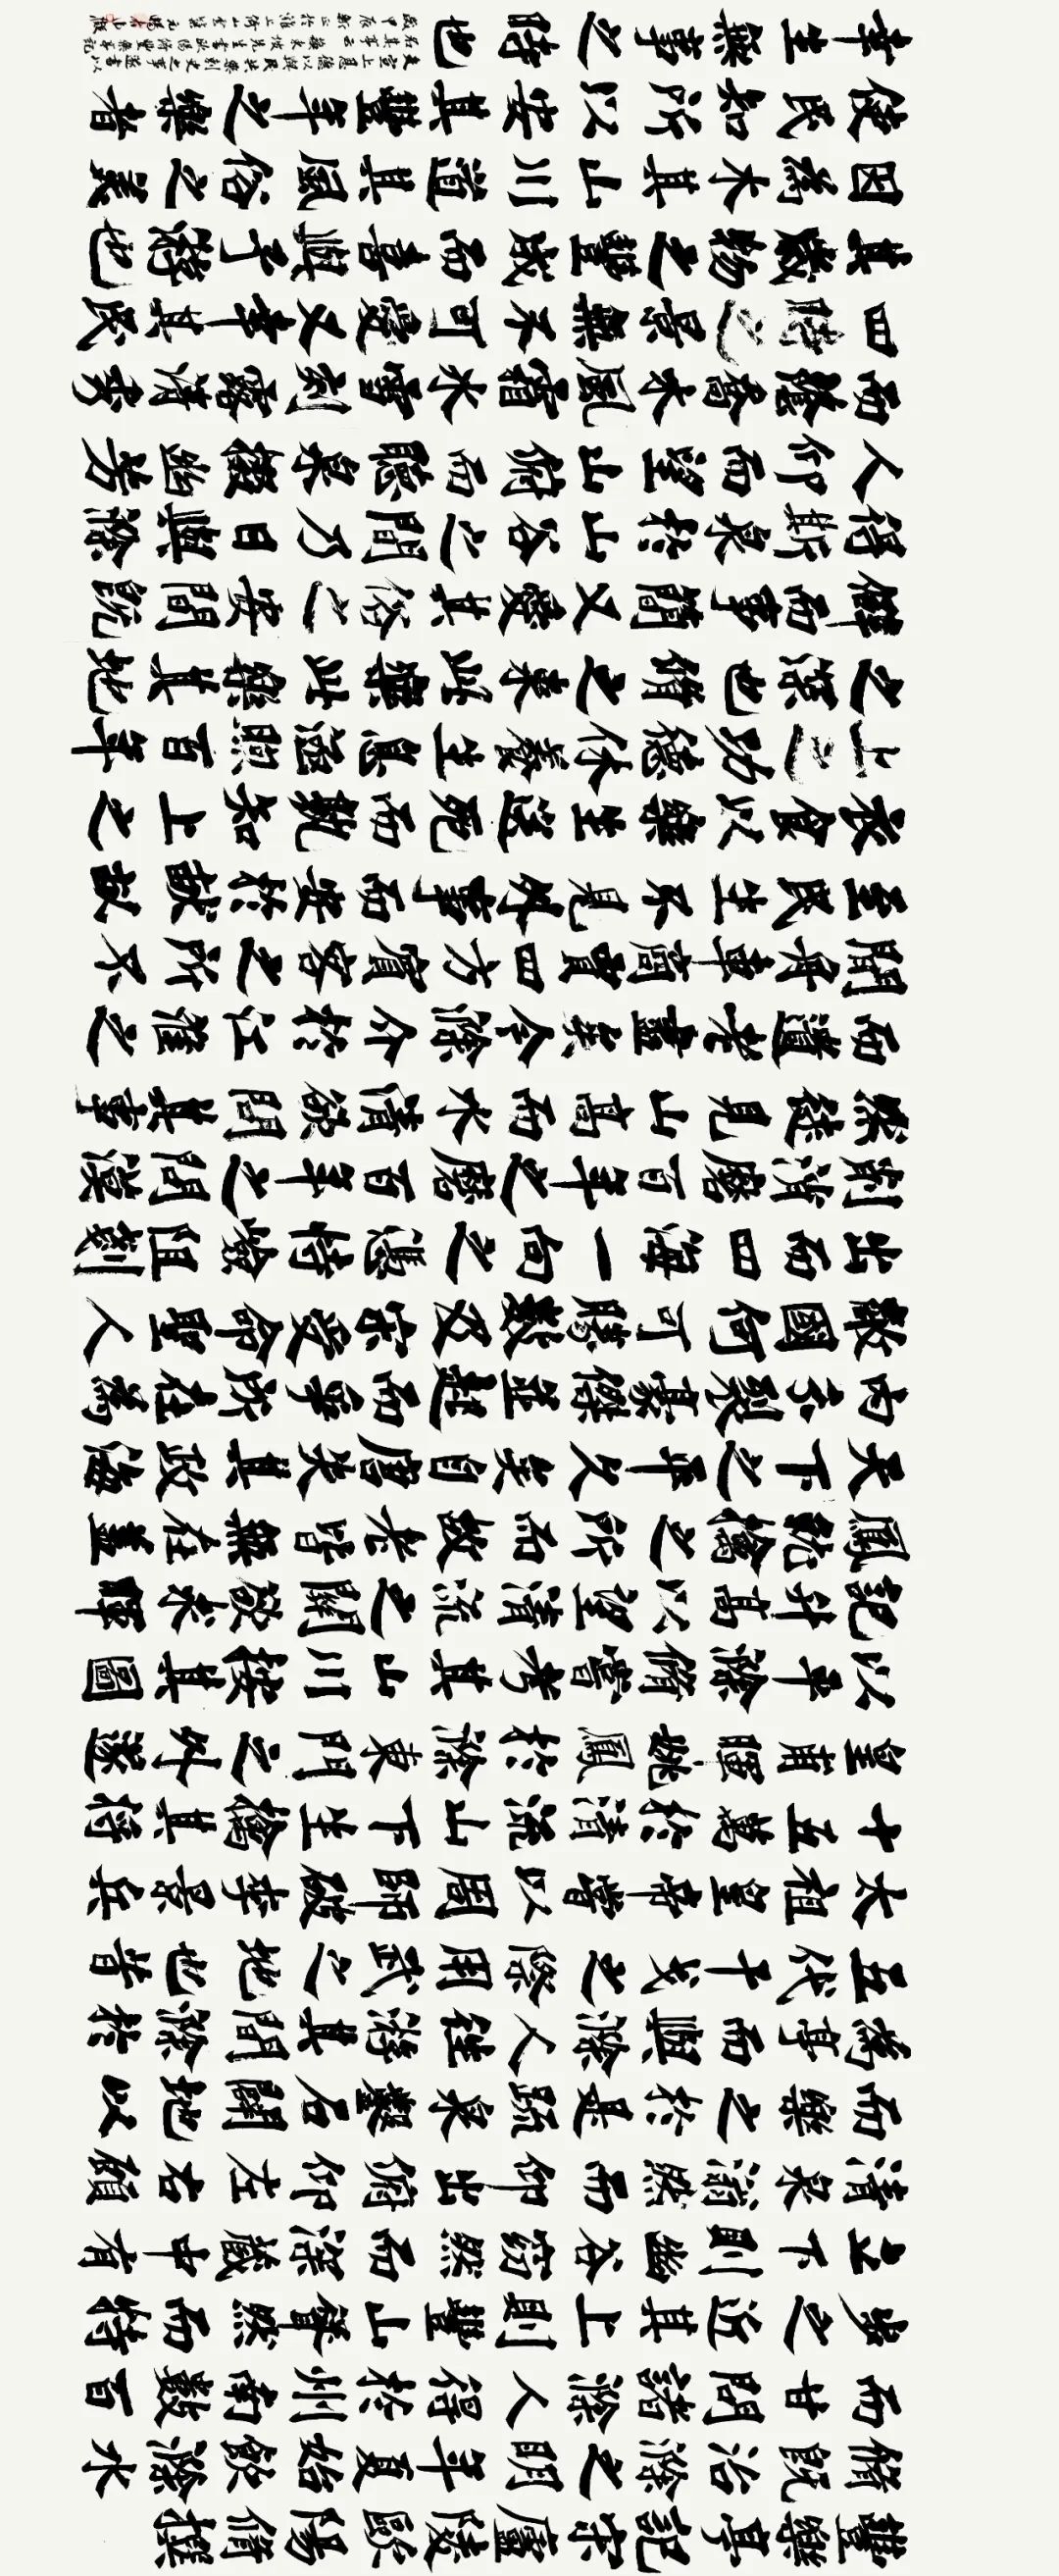 豐樂亭記宋廬陵歐陽脩撰
脩既治滁之明年夏始飲滁水
而甘問諸滁人得於州南數百
步之近其上則豐山聳然而特
立下則幽谷窈然而深藏中有
清泉滃然而仰出俯仰左右顧
而樂之於是疏泉鑿石闢地以
為亭而與滁人往游其間滁於
五代干戈之際用武之地也昔
太祖皇帝嘗以周師破李景兵
十五萬於清流山下生擒其將
皇甫暉姚鳳於滁東門之外遂
以平滁脩嘗考其山川按其圖
記升高以望清流之關欲求暉
鳳就擒之所而故老皆無在蓋
天下之平久矣自唐失其政海
內分裂豪傑並起而爭所在為
敵國何可勝數及宋受命聖人
出而四海一向之憑恃險阻剗
削消磨百年之磨百年之間漠
然徒見山高而水清欲問其事
而遺老盡矣今滁介於江淮之
間舟車商賈四方賓客之所不
至民生不見外事而安於畎畝
衣食以樂生送死而孰知上之
上之功德休養生息涵煦百年
之深也脩之來此樂此樂其地
僻而事簡又愛其俗之安閒既
得斯泉於山谷之間乃日與滁
人仰而望山俯而聽泉掇幽芳
而蔭喬木風霜冰雪刻露清秀
四時之景無不可愛又幸其民
其歲物之豐成而喜與予游也
因為本其山川道其風俗之美
使民知所以安其豐年之樂者
幸生無事之時也
夫宣上恩德以與民共樂刺史之事遂書以